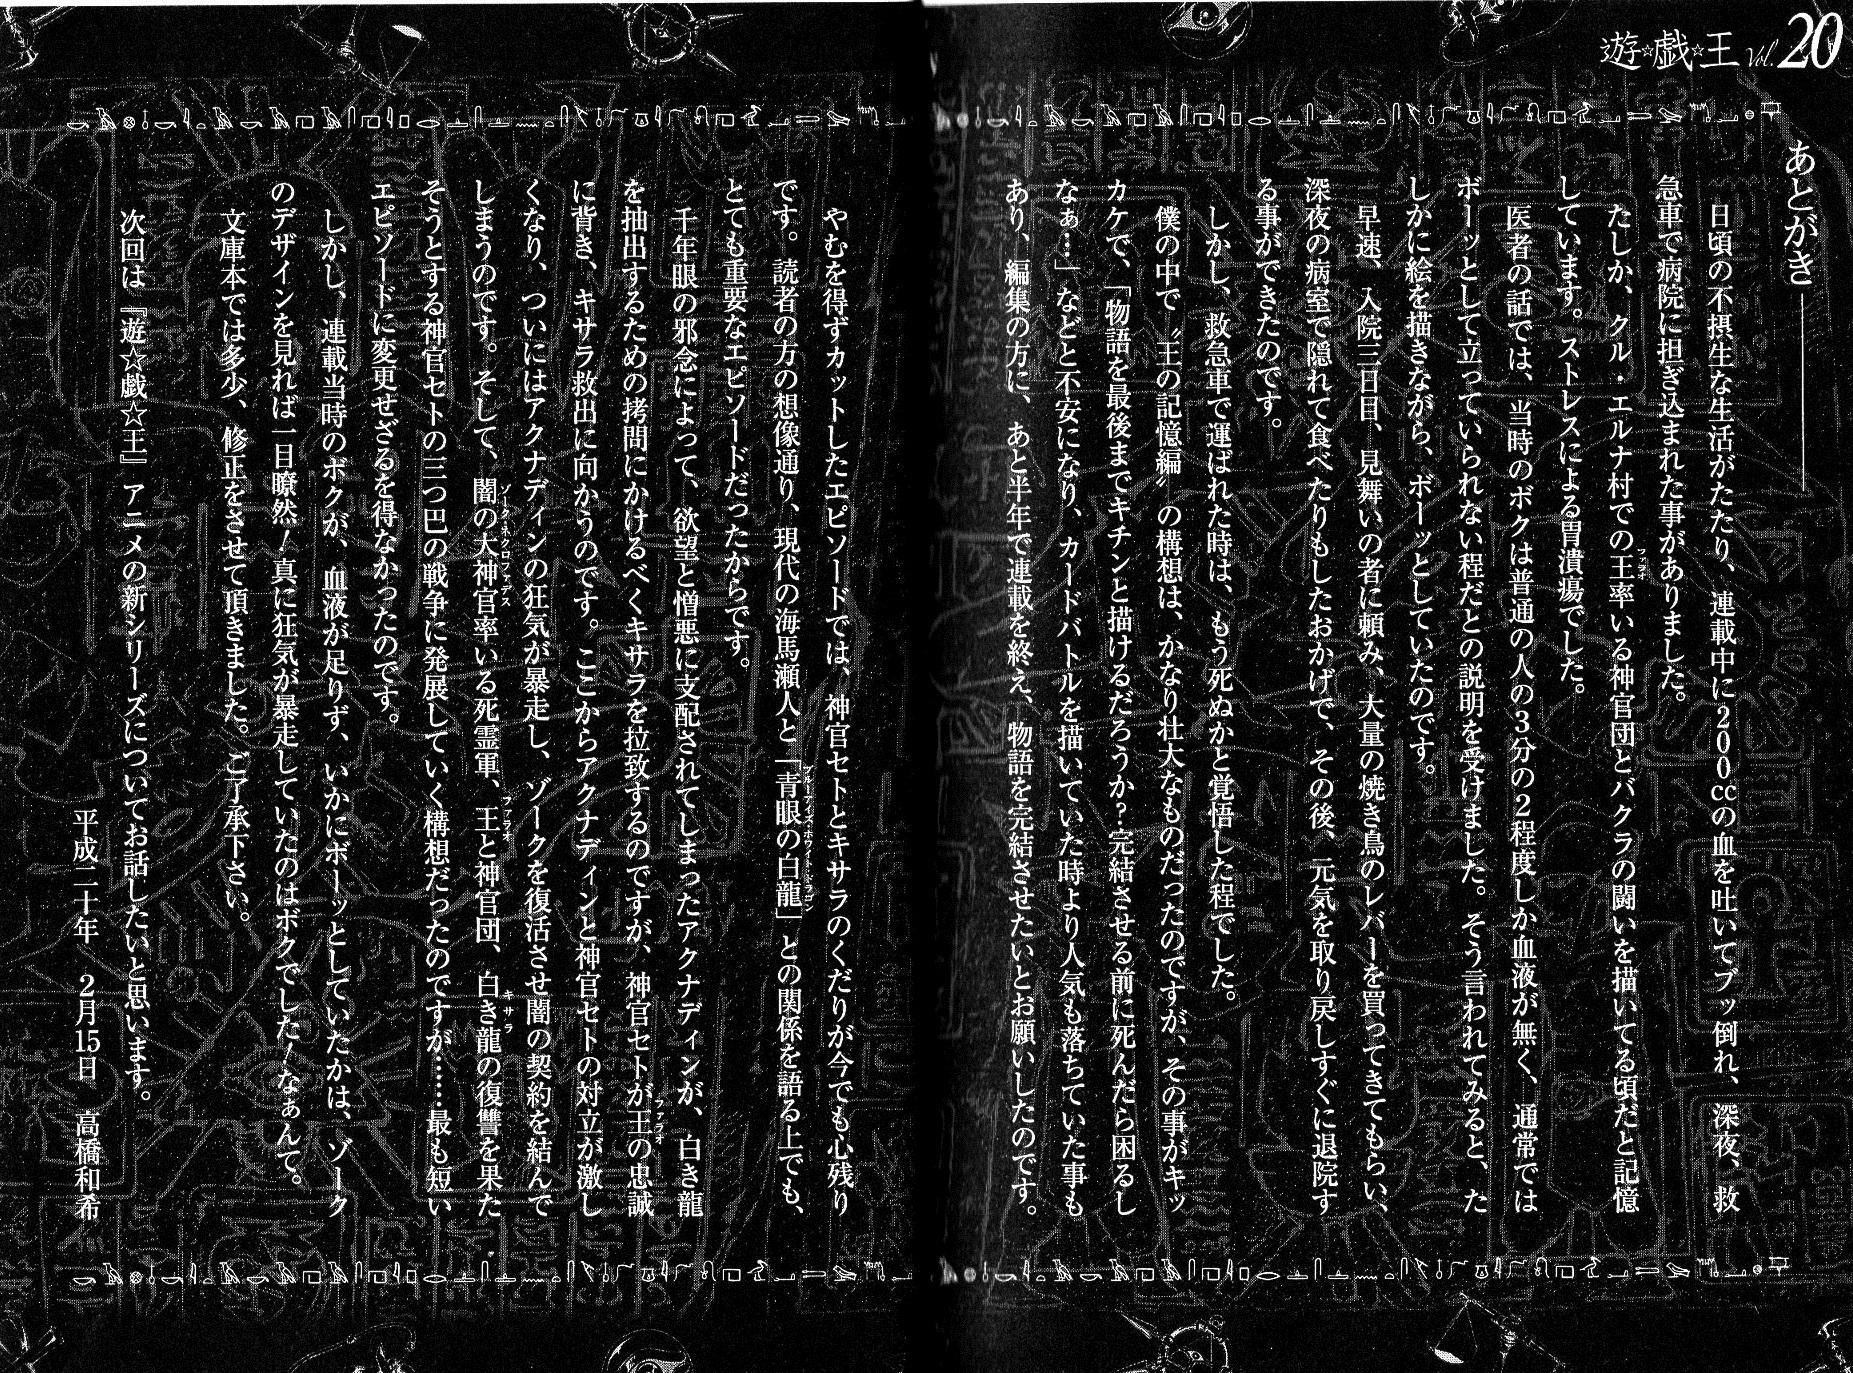 遊☆戯☆王 Vol.20
あとがき
日頃の不摂生な生活がたたり、連載中に200ccの血を吐いてブッ倒れ、深夜、救
急車で病院に担ぎ込まれた事がありました。
たしか、クル・エルナ村での王率いる神官団とバクラの闘いを描いてる頃だと記憶
ファラオ
しています。ストレスによる胃潰瘍でした。
医者の話では、当時のボクは普通の人の3分の2程度しか血液が無く、通常では
ボーッとして立っていられない程だとの説明を受けました。そう言われてみると、た
しかに絵を描きながら、ボーッとしていたのです。
早速、入院三日目、見舞いの者に頼み、大量の焼き鳥のレバーを買ってきてもらい、
深夜の病室で隠れて食べたりもしたおかげで、その後、元気を取り戻しすぐに退院す
る事ができたのです。
しかし、救急車で運ばれた時は、もう死ぬかと覚悟した程でした。
僕の中で〝王の記憶編〟の構想は、かなり壮大なものだったのですが、その事がキッ
カケで、「物語を最後までキチンと描けるだろうか?完結させる前に死んだら困るし
なぁ…」などと不安になり、カードバトルを描いていた時より人気も落ちていた事も
あり、編集の方に、あと半年で連載を終え、物語を完結させたいとお願いしたのです。
やむを得ずカットしたエピソードでは、神官セトとキサラのくだりが今でも心残り
です。読者の方の想像通り、現代の海馬瀬人と「青眼の白龍」との関係を語る上でも、
ブルーアイズ・ホワイト・ドラゴン
とても重要なエピソードだったからです。
千年眼の邪念によって、欲望と憎悪に支配されてしまったアクナディンが、白き龍
を抽出するための拷問にかけるべくキサラを拉致するのですが、神官セトが王の忠誠
ファラオ
に背き、キサラ救出に向かうのです。ここからアクナディンと神官セトの対立が激し
くなり、ついにはアクナディンの狂気が暴走し、ゾークを復活させ闇の契約を結んで
しまうのです。そして、闇の大神官率いる死霊軍、王と神官団、白き龍の復讐を果た
ゾーク・ネクロファデス ファラオ キサラ
そうとする神官セトの三つ巴の戦争に発展していく構想だったのですが……最も短い
エピソードに変更せざるを得なかったのです。
しかし、連載当時のボクが、血液が足りず、いかにボーッとしていたかは、ゾーク
のデザインを見れば一目瞭然!真に狂気が暴走していたのはボクでした!なぁんて。
文庫本では多少、修正をさせて頂きました。ご了承下さい。
次回は『遊☆戯☆王』アニメの新シリーズについてお話したいと思います。
平成二十年 2月15日 高橋和希